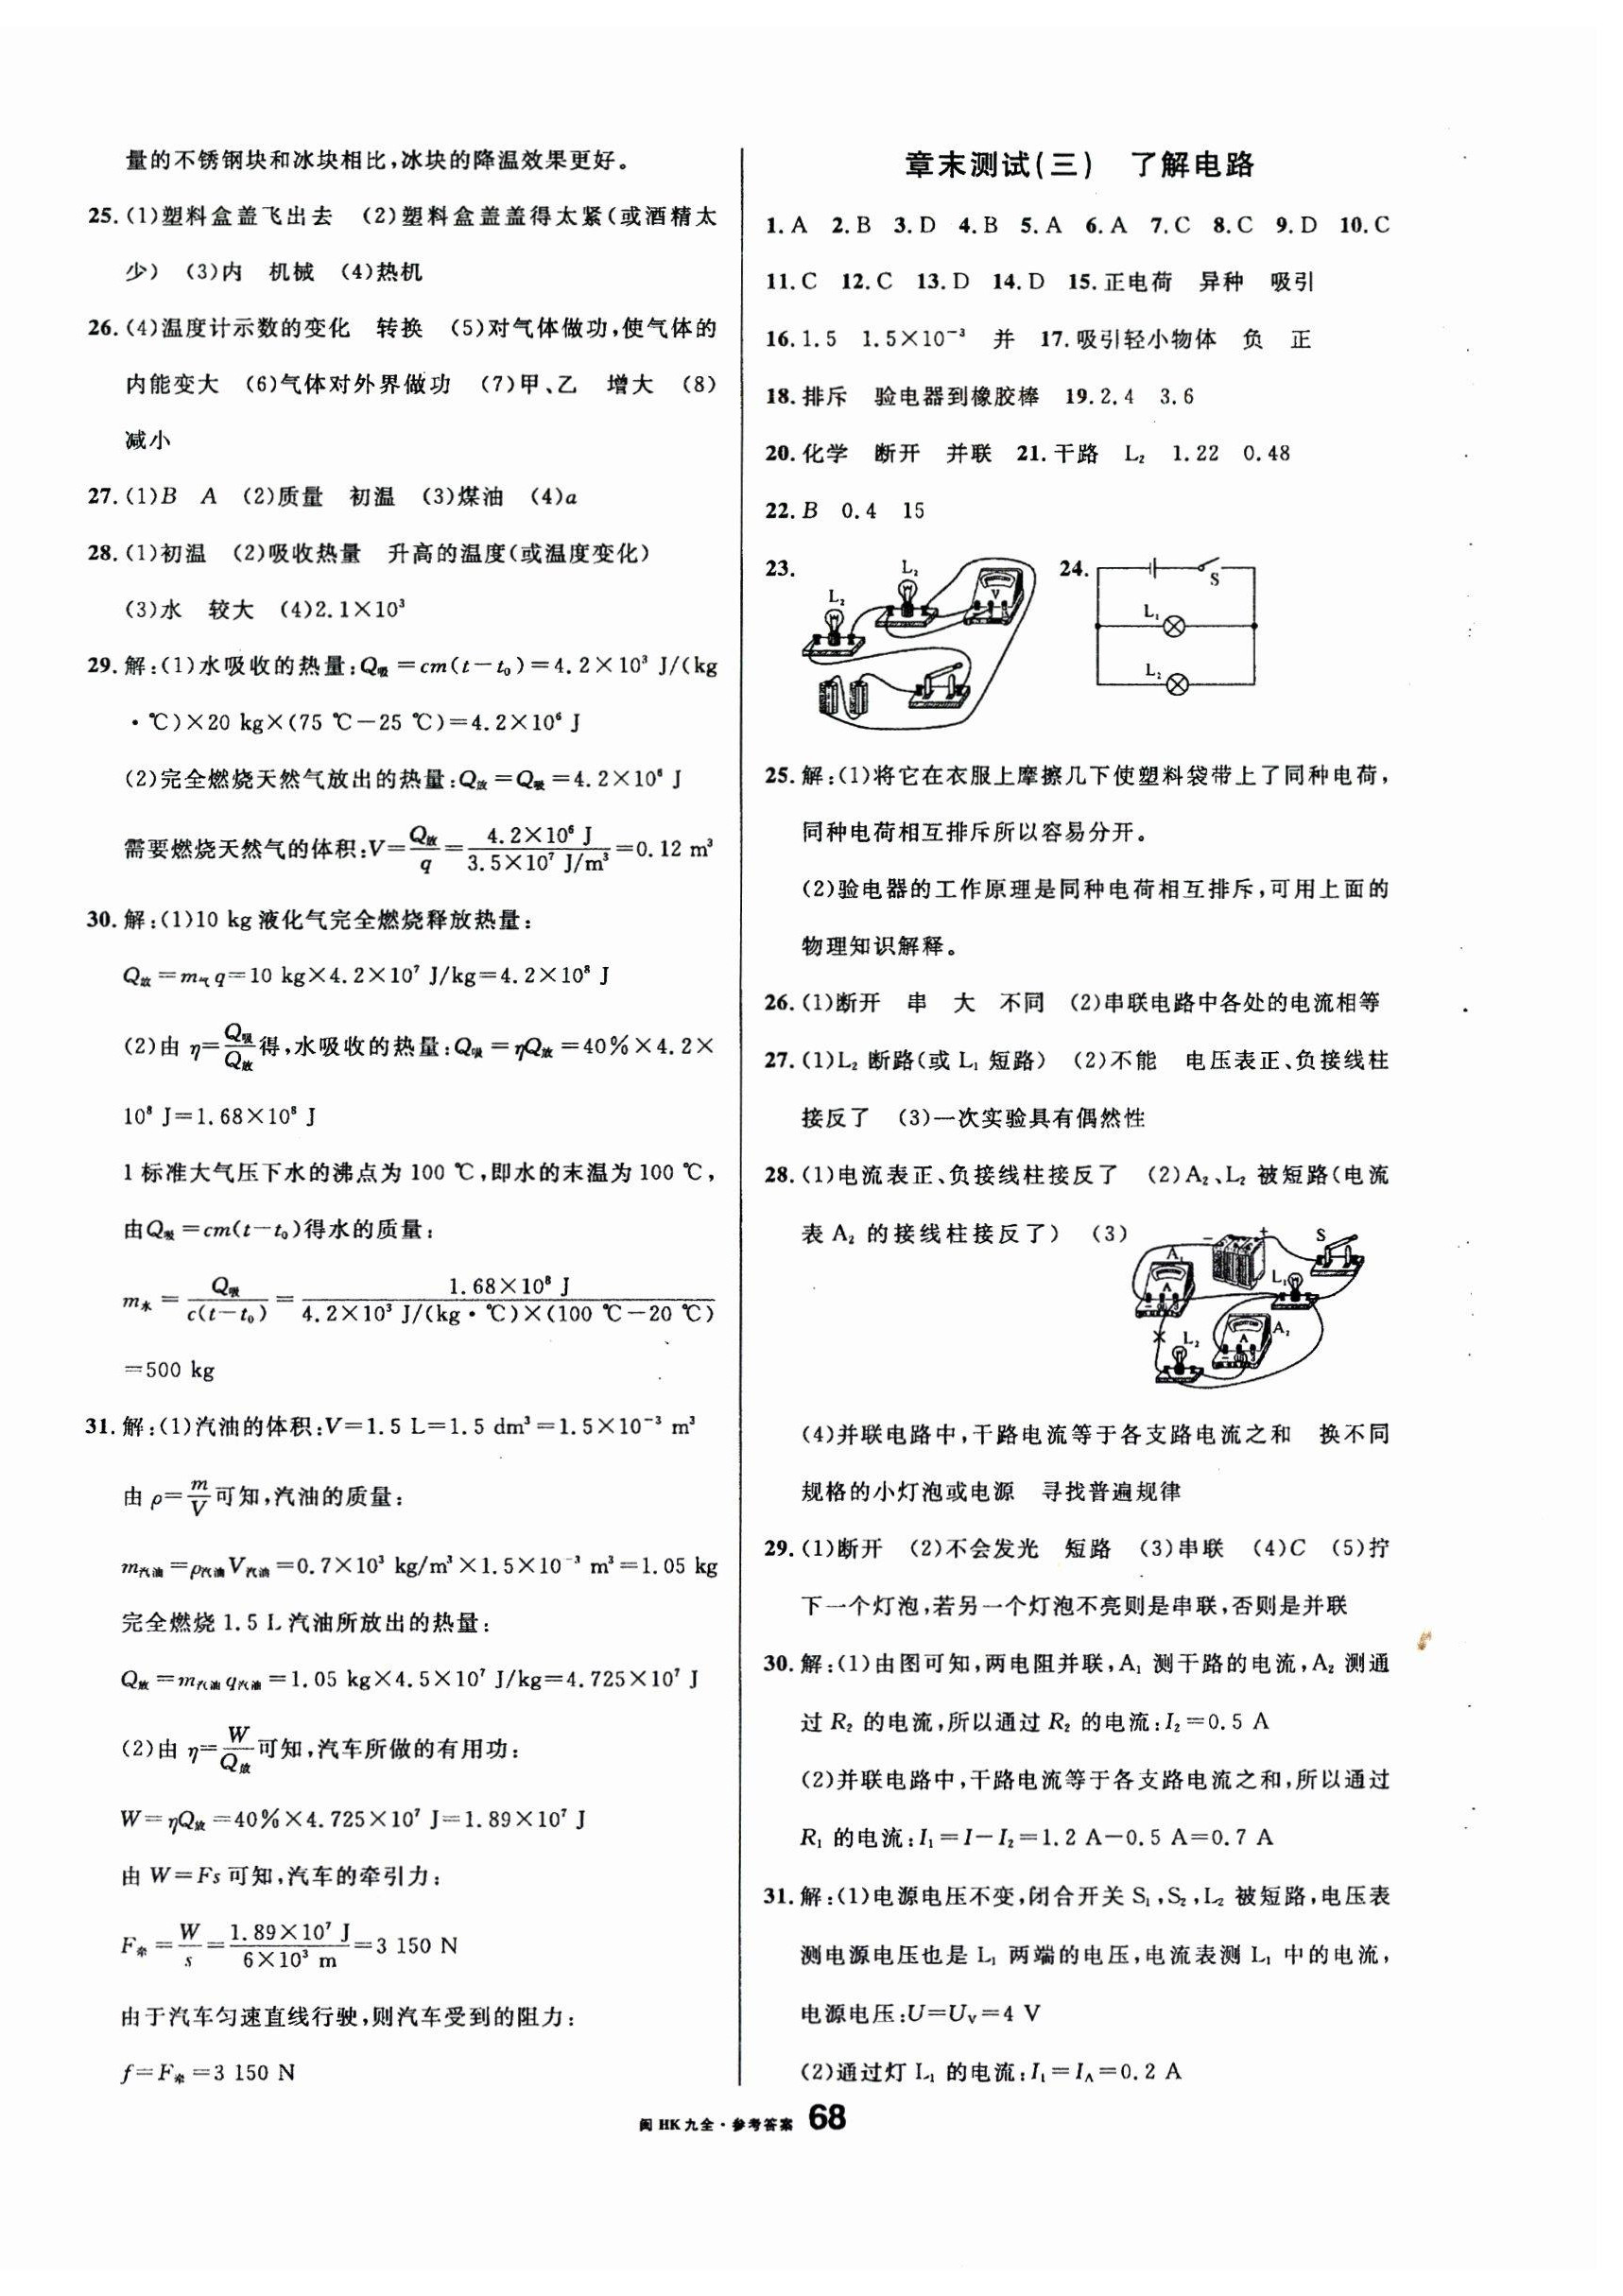 量的不锈钢块和冰块相比,冰块的降温效果更好。
25.(1)塑料盒盖飞出去 (2)塑料盒盖盖得太紧(或酒精太
少) (3)内 机械 (4)热机
26.(4)温度计示数的变化 转换 (5)对气体做功,使气体的
内能变大 (6)气体对外界做功 (7)甲、乙 增大 (8)
减小
27.(1)B A (2)质量 初温 (3)煤油 (4)a
28.(1)初温 (2)吸收热量 升高的温度(或温度变化)
(3)水 较大 (4)2.1×10³
29.解:(1)水吸收的热量:Q吸=cm(t-t₀)=4.2×10³ J/(kg
·℃)×20 kg×(75 ℃-25 ℃)=4.2×10⁶ J
(2)完全燃烧天然气放出的热量:Q放=Q吸=4.2×10⁶ J
需要燃烧天然气的体积:V=Q放/q=4.2×10⁶ J/3.5×10⁷ J/m³=0.12 m³
30.解:(1)10 kg液化气完全燃烧释放热量:
Q放=m气q=10 kg×4.2×10⁷ J/kg=4.2×10⁸ J
(2)由 η=Q吸/Q放得,水吸收的热量:Q吸=ηQ放=40%×4.2×
10⁸ J=1.68×10⁸ J
1标准大气压下水的沸点为100 ℃,即水的末温为100 ℃,
由Q吸=cm(t-t₀)得水的质量:
m水=Q吸/c(t-t₀)=1.68×10⁸ J/4.2×10³ J/(kg·℃)×(100 ℃-20 ℃)
=500 kg
31.解:(1)汽油的体积:V=1.5 L=1.5 dm³=1.5×10⁻³ m³
由 ρ=m/V可知,汽油的质量:
m汽油=ρ汽油V汽油=0.7×10³ kg/m³×1.5×10⁻³ m³=1.05 kg
完全燃烧1.5 L汽油所放出的热量:
Q放=m汽油q汽油=1.05 kg×4.5×10⁷ J/kg=4.725×10⁷ J
(2)由 η=W/Q放可知,汽车所做的有用功:
W=ηQ放=40%×4.725×10⁷ J=1.89×10⁷ J
由W=Fs可知,汽车的牵引力:
F牵=W/s=1.89×10⁷ J/6×10³ m=3 150 N
由于汽车匀速直线行驶,则汽车受到的阻力:
f=F牵=3 150 N
章末测试(三) 了解电路
1.A 2.B 3.D 4.B 5.A 6.A 7.C 8.C 9.D 10.C
11.C 12.C 13.D 14.D 15.正电荷 异种 吸引
16.1.5 1.5×10⁻³ 并 17.吸引轻小物体 负 正
18.排斥 验电器到橡胶棒 19.2.4 3.6
20.化学 断开 并联 21.干路 L₂ 1.22 0.48
22.B 0.4 15
23. L₂ L₂ V 24. S L₁ L₂
25.解:(1)将它在衣服上摩擦几下使塑料袋带上了同种电荷,
同种电荷相互排斥所以容易分开。
(2)验电器的工作原理是同种电荷相互排斥,可用上面的
物理知识解释。
26.(1)断开 串 大 不同 (2)串联电路中各处的电流相等
27.(1)L₂断路(或L₁短路) (2)不能 电压表正、负接线柱
接反了 (3)一次实验具有偶然性
28.(1)电流表正、负接线柱接反了 (2)A₂、L₂被短路(电流
表A₂的接线柱接反了) (3)
A₁ A - + S L₁ L₂ A A₂
(4)并联电路中,干路电流等于各支路电流之和 换不同
规格的小灯泡或电源 寻找普遍规律
29.(1)断开 (2)不会发光 短路 (3)串联 (4)C (5)拧
下一个灯泡,若另一个灯泡不亮则是串联,否则是并联
30.解:(1)由图可知,两电阻并联,A₁测干路的电流,A₂测通
过R₂的电流,所以通过R₂的电流:I₂=0.5 A
(2)并联电路中,干路电流等于各支路电流之和,所以通过
R₁的电流:I₁=I-I₂=1.2 A-0.5 A=0.7 A
31.解:(1)电源电压不变,闭合开关S₁,S₂,L₂被短路,电压表
测电源电压也是L₁两端的电压,电流表测L₁中的电流,
电源电压:U=Uᵥ=4 V
(2)通过灯L₁的电流:I₁=I_A=0.2 A
闽HK九全·参考答案 68